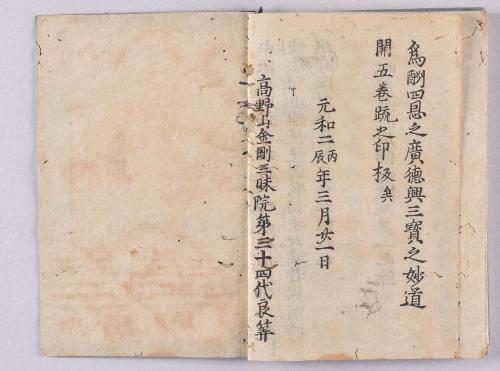 爲酬四恩之廣徳興三寶之妙道
開五巻疏之印板矣
元和二丙辰年三月廿一日
高野山金剛三昧院第三十四代良筭